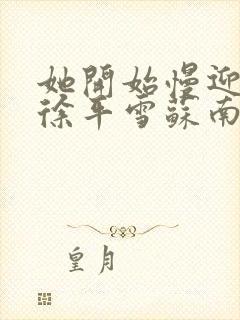 她開始慢迎
徐平雪蘇南
皇月